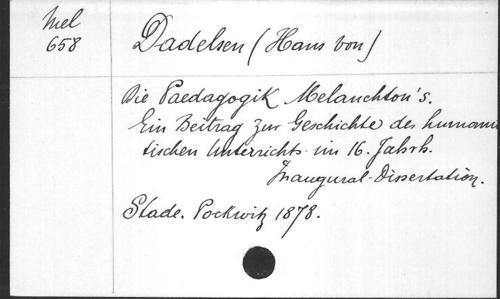 Mel
658
Dadelsen (Hans von)
Die Paedagogik Melanchton's.
Ein Beitrag zur Geschichte des humanis
tischen Unterrichts im 16. Jahrh.
Inaugural-Dissertation.
Stade. Pockwitz 1878.